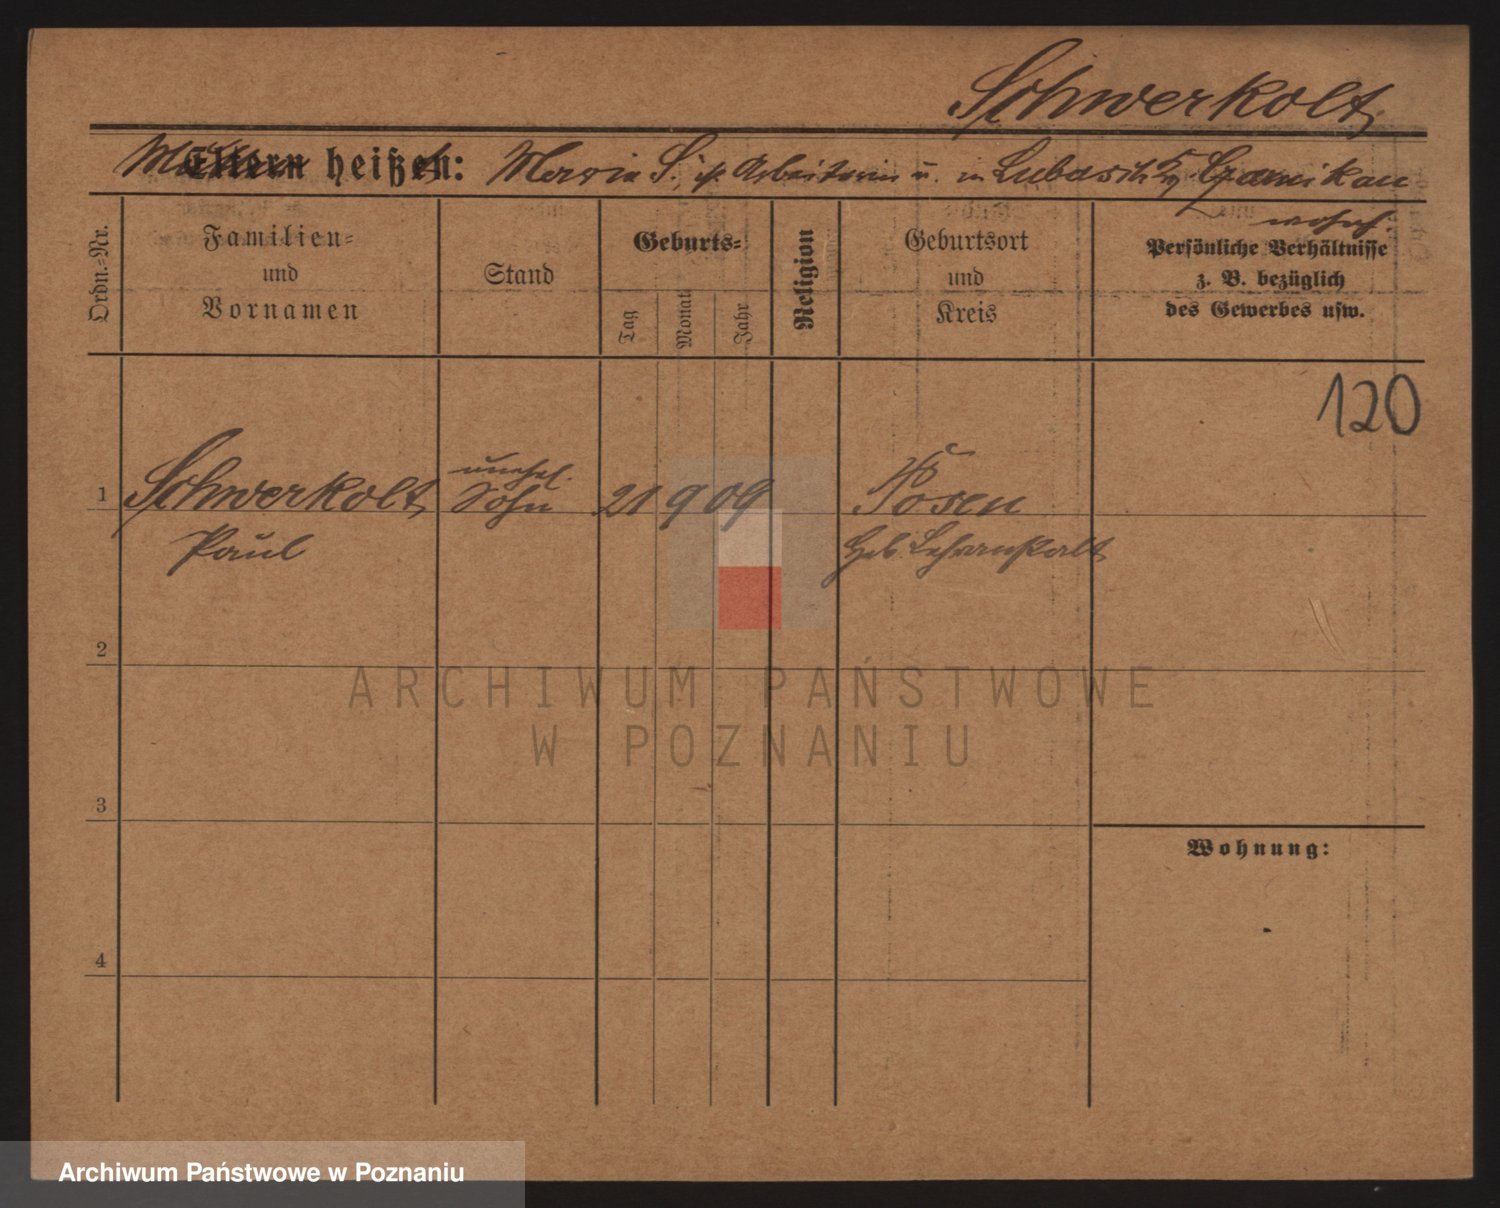 Schwerkolt,
Mutter heißt: Maria S., ist Arbeiterin u. in Lubasch Kr. Czarnikau
wohnh.
Ordn.-Nr.
Familien-
und
Vornamen
Stand
Geburts-
Tag
Monat
Jahr
Religion
Geburtsort
und
Kreis
Persönliche Verhältnisse
z. B. bezüglich
des Gewerbes usw.
120
1 Schwerkolt, unehel. Sohn 21 9 09 Posen
Paul Heb. Lehranstalt
2
3
4
Wohnung:
ARCHIWUM PAŃSTWOWE
W POZNANIU
Archiwum Państwowe w Poznaniu